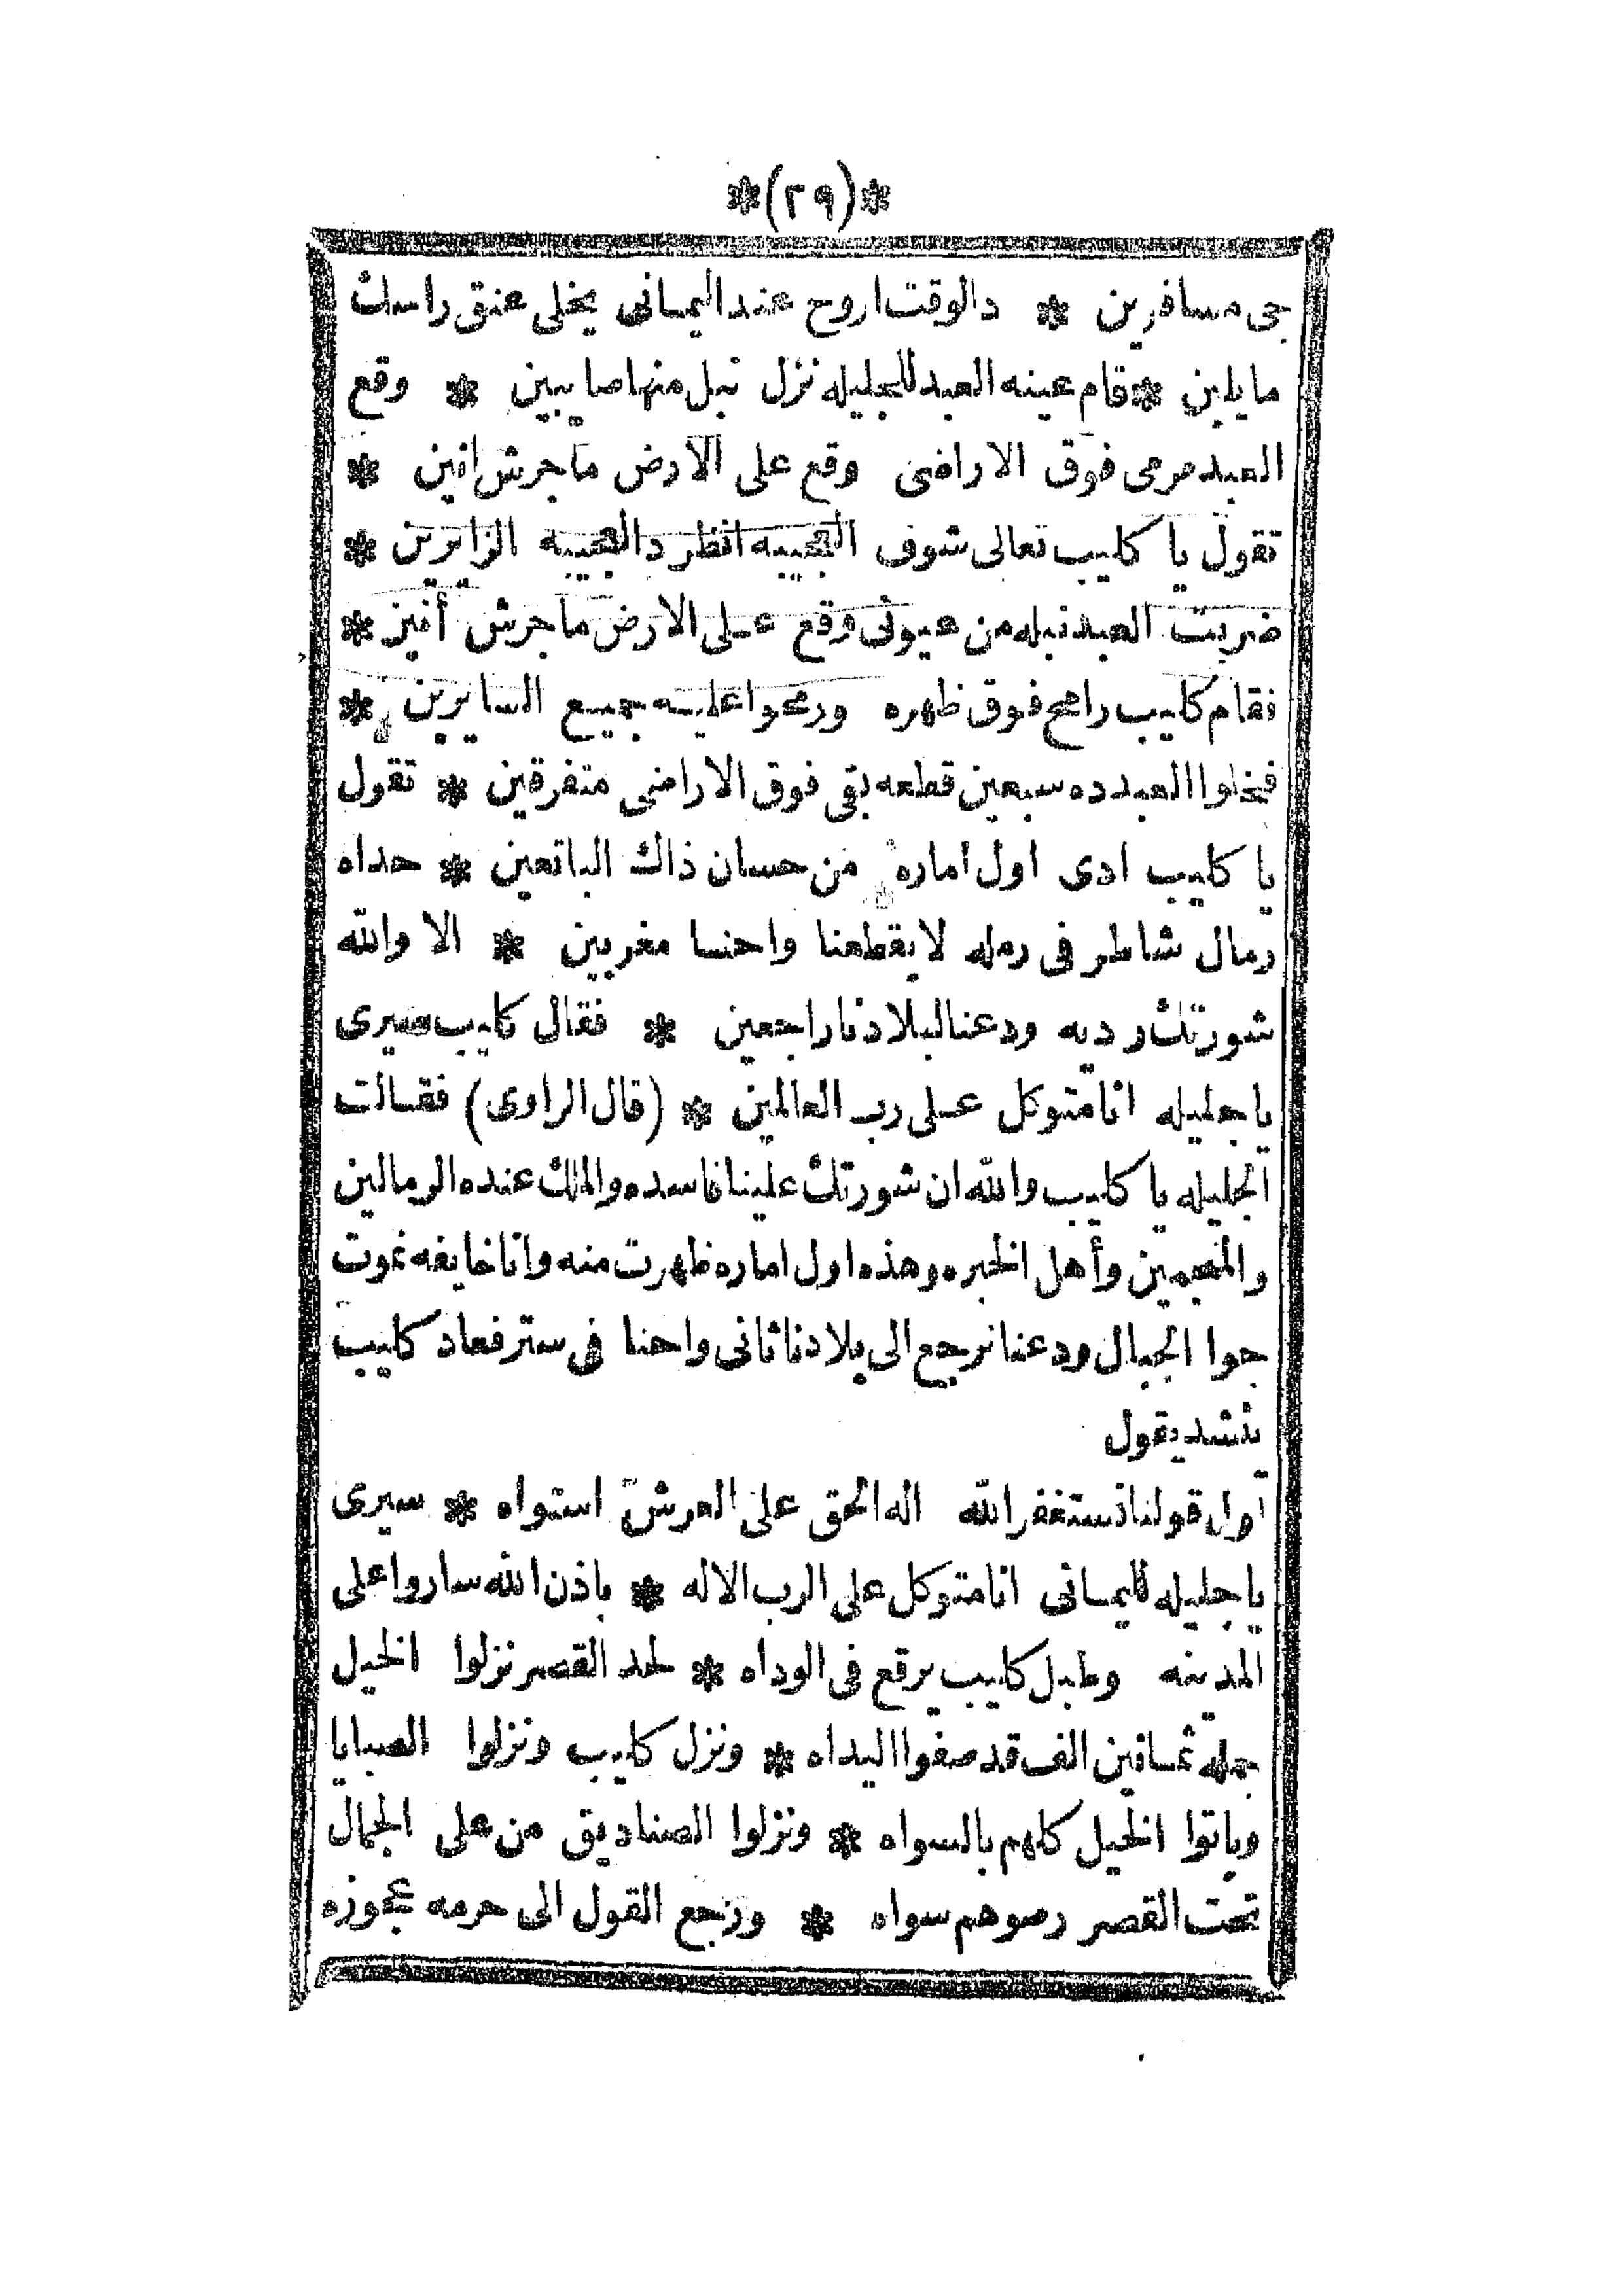 *(٢٩)*
جى مسافرين * دالوقت اروح عند اليمانى يخلى عنق راسك
مايلين * قام عينه العبد للجليله نزل نبل منها صايبين * وقع
العبد مرمى فوق الاراضى وقع على الارض ماجرش انين *
تقول يا كليب تعالى شوف العجيبه انظر دالعجيبه الزايرين *
ضربت العبد نبله من عيونى وقع على الارض ماجرش أنين *
فقام كليب رامح فوق ظهره ورمحوا عليه جميع السايرين *
فخلوا العبد ده سبعين قطعه بقى فوق الاراضى متفرقين * تقول
يا كليب ادى اول اماره من حسان ذاك الباتعين * حداه
رمال شاطر فى رمله لايقطعنا واحنا مغربين * الا والله
شورتك رديه ودعنا لبلادنا راجعين * فقال كليب سيرى
ياجليله انا متوكل على رب العالمين * (قال الراوى) فقالت
الجليله يا كليب والله ان شورتك علينا فاسده والملك عنده الرمالين
والمنجمين وأهل الخبره وهذه اول اماره ظهرت منه وانا خايفه نموت
جوا الجبال ودعنا نرجع الى بلادنا ثانى واحنا فى ستر فعاد كليب
ينشد يقول
أول قولنا نستغفر الله اله الحق على العرش استواه * سيرى
ياجليله لليمانى انا متوكل على الرب الاله * باذن الله ساروا على
المدينه وطبل كليب يرقع فى الوداه * لحد القصر نزلوا الخيل
جمله ثمانين الف قد صفوا اليداه * ونزل كليب ونزلوا الصبايا
وباتوا الخيل كلهم بالسواه * ونزلوا الصناديق من على الجمال
تحت القصر رصوهم سواه * ونرجع القول الى حرمه عجوزه